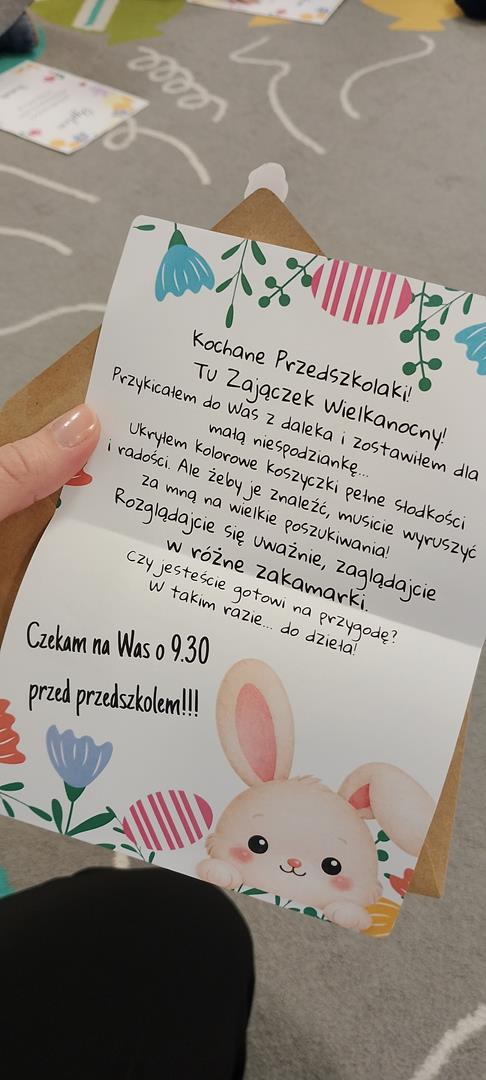 Kochane Przedszkolaki!
Tu Zajączek Wielkanocny!
Przykicałem do Was z daleka i zostawiłem dla
małą niespodziankę...
Ukryłem kolorowe koszyczki pełne słodkości
i radości. Ale żeby je znaleźć, musicie wyruszyć
za mną na wielkie poszukiwania!
Rozglądajcie się uważnie, zaglądajcie
w różne zakamarki.
Czy jesteście gotowi na przygodę?
W takim razie... do dzieła!
Czekam na Was o 9.30
przed przedszkolem!!!